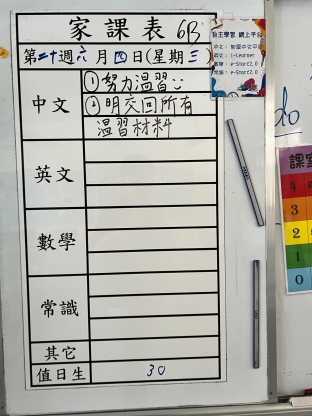 家課表 6B
第二十週六月四日(星期三)
中文
①努力溫習
②明交回所有
溫習材料
英文
數學
常識
其它
值日生 30
自主學習 網上平台
i-Learner
e-Smart2.0
e-Smart2.0
do
課室
4
3
2
1
0